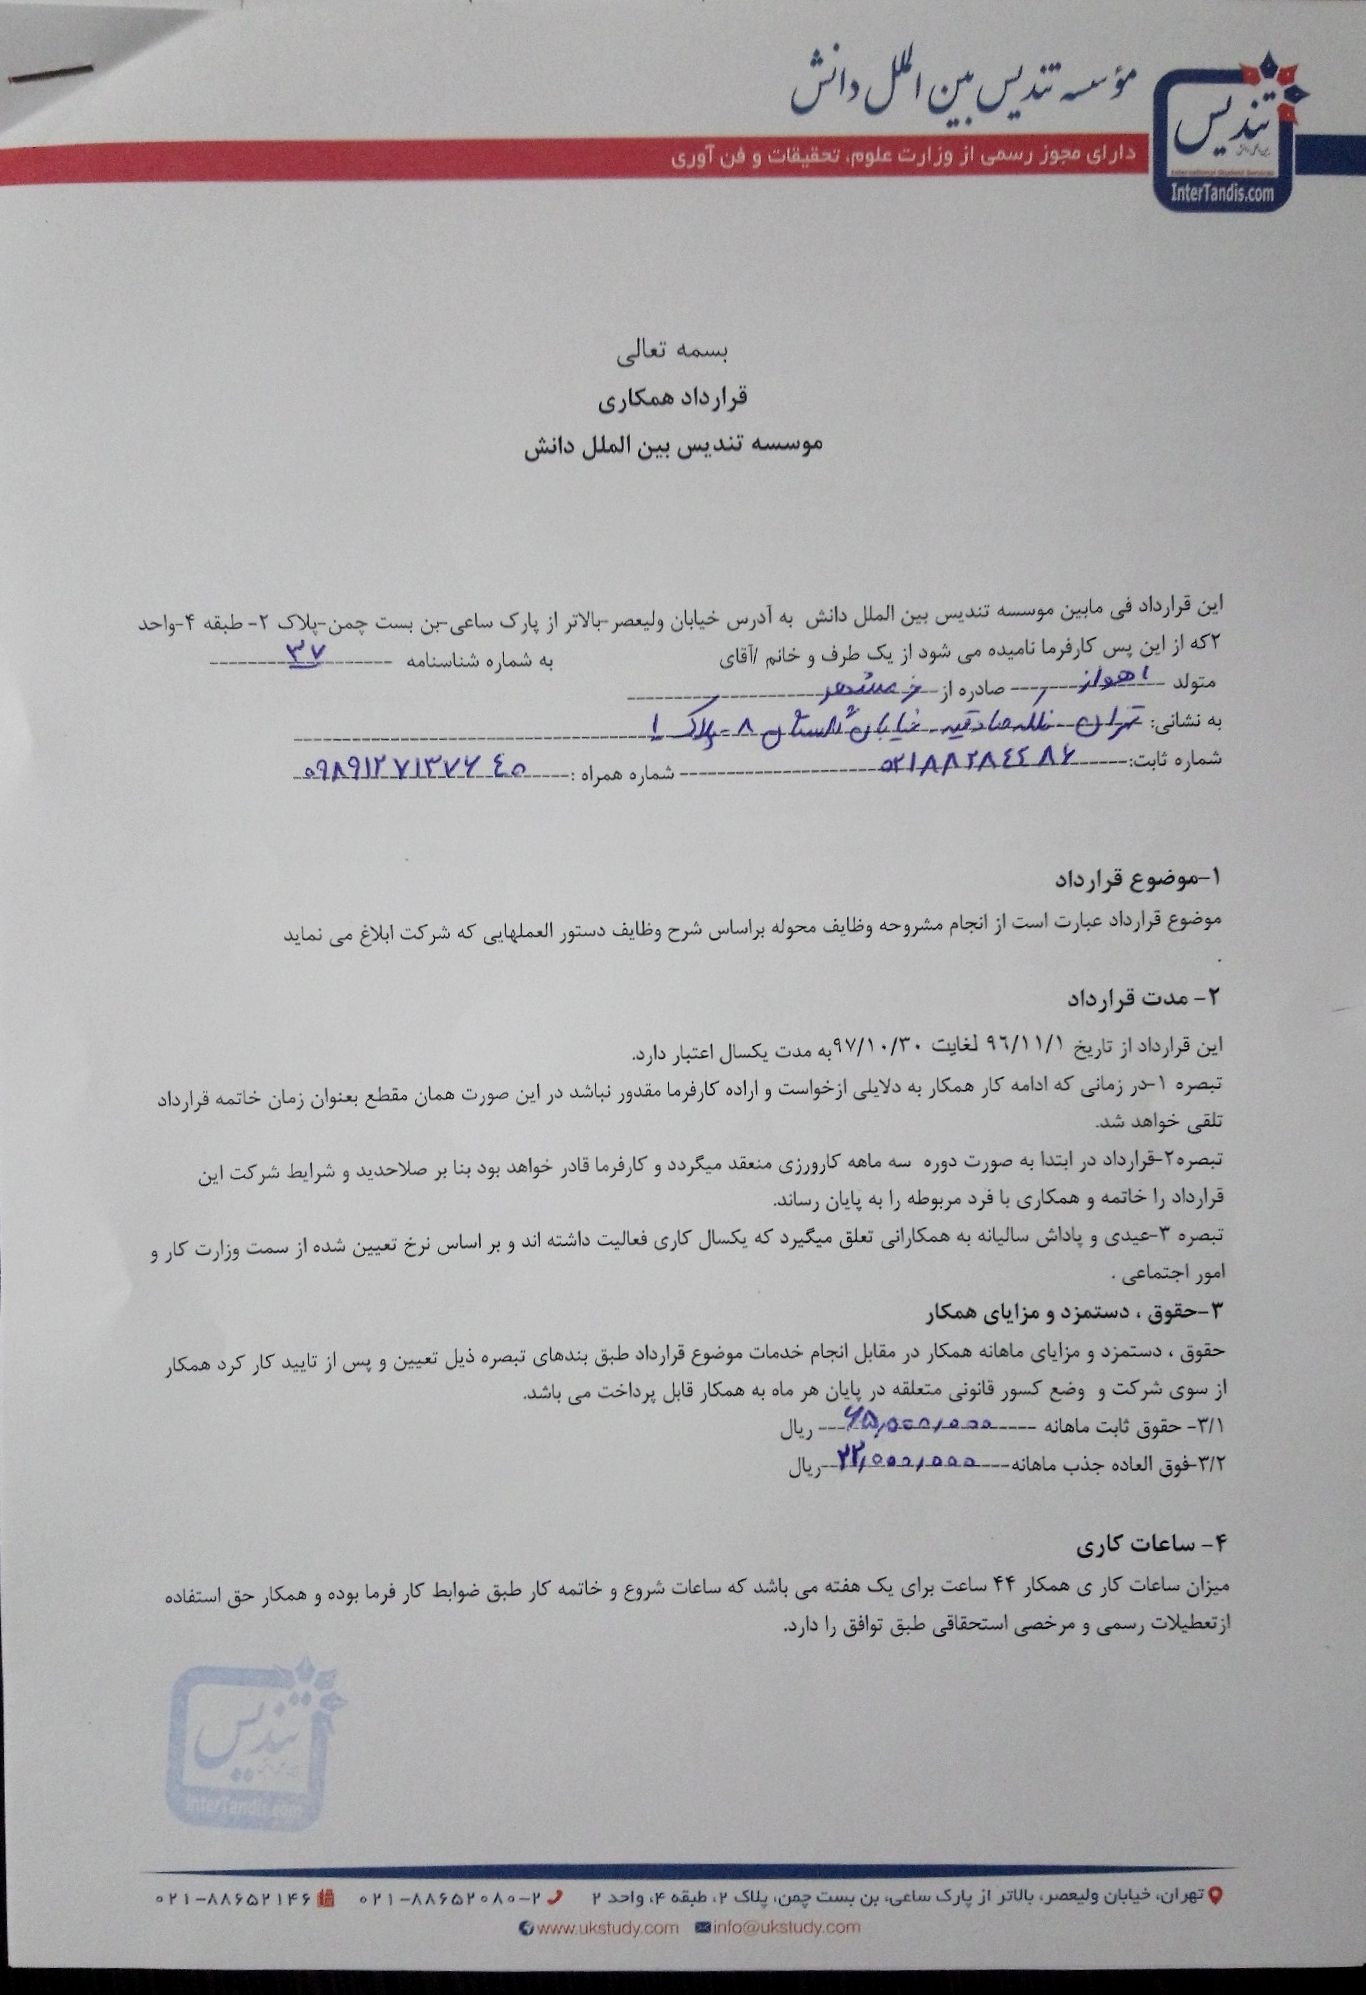 مؤسسه تندیس بین الملل دانش
دارای مجوز رسمی از وزارت علوم، تحقیقات و فن آوری
تندیس
International Student Services
InterTandis.com
بسمه تعالی
قرارداد همکاری
موسسه تندیس بین الملل دانش
این قرارداد فی مابین موسسه تندیس بین الملل دانش به آدرس خیابان ولیعصر-بالاتر از پارک ساعی-بن بست چمن-پلاک ۲- طبقه ۴-واحد
۲که از این پس کارفرما نامیده می شود از یک طرف و خانم /آقای به شماره شناسنامه ۳۷
متولد اهواز صادره از خرمشهر
به نشانی: تهران فلکه صادقیه خیابان گلستان ۸ - پلاک ۱
شماره ثابت: ۰۲۱۸۸۲۸۴۴۸۶ شماره همراه : ۰۹۸۹۱۲۷۱۳۷۶۴۵
۱-موضوع قرارداد
موضوع قرارداد عبارت است از انجام مشروحه وظایف محوله براساس شرح وظایف دستور العملهایی که شرکت ابلاغ می نماید
.
۲- مدت قرارداد
این قرارداد از تاریخ ۹۶/۱۱/۱ لغایت ۹۷/۱۰/۳۰به مدت یکسال اعتبار دارد.
تبصره ۱-در زمانی که ادامه کار همکار به دلایلی ازخواست و اراده کارفرما مقدور نباشد در این صورت همان مقطع بعنوان زمان خاتمه قرارداد
تلقی خواهد شد.
تبصره۲-قرارداد در ابتدا به صورت دوره سه ماهه کارورزی منعقد میگردد و کارفرما قادر خواهد بود بنا بر صلاحدید و شرایط شرکت این
قرارداد را خاتمه و همکاری با فرد مربوطه را به پایان رساند.
تبصره ۳-عیدی و پاداش سالیانه به همکارانی تعلق میگیرد که یکسال کاری فعالیت داشته اند و بر اساس نرخ تعیین شده از سمت وزارت کار و
امور اجتماعی .
۳-حقوق ، دستمزد و مزایای همکار
حقوق ، دستمزد و مزایای ماهانه همکار در مقابل انجام خدمات موضوع قرارداد طبق بندهای تبصره ذیل تعیین و پس از تایید کار کرد همکار
از سوی شرکت و وضع کسور قانونی متعلقه در پایان هر ماه به همکار قابل پرداخت می باشد.
۳/۱- حقوق ثابت ماهانه ۶۵,۰۰۰,۰۰۰ ریال
۳/۲-فوق العاده جذب ماهانه ۲۲,۰۰۰,۰۰۰ ریال
۴- ساعات کاری
میزان ساعات کار ی همکار ۴۴ ساعت برای یک هفته می باشد که ساعات شروع و خاتمه کار طبق ضوابط کار فرما بوده و همکار حق استفاده
ازتعطیلات رسمی و مرخصی استحقاقی طبق توافق را دارد.
تندیس
InterTandis.com
تهران، خیابان ولیعصر، بالاتر از پارک ساعی، بن بست چمن، پلاک ۲، طبقه ۴، واحد ۲ ۰۲۱-۸۸۶۵۲۰۸۰-۲ ۰۲۱-۸۸۶۵۲۱۴۶
www.ukstudy.com info@ukstudy.com